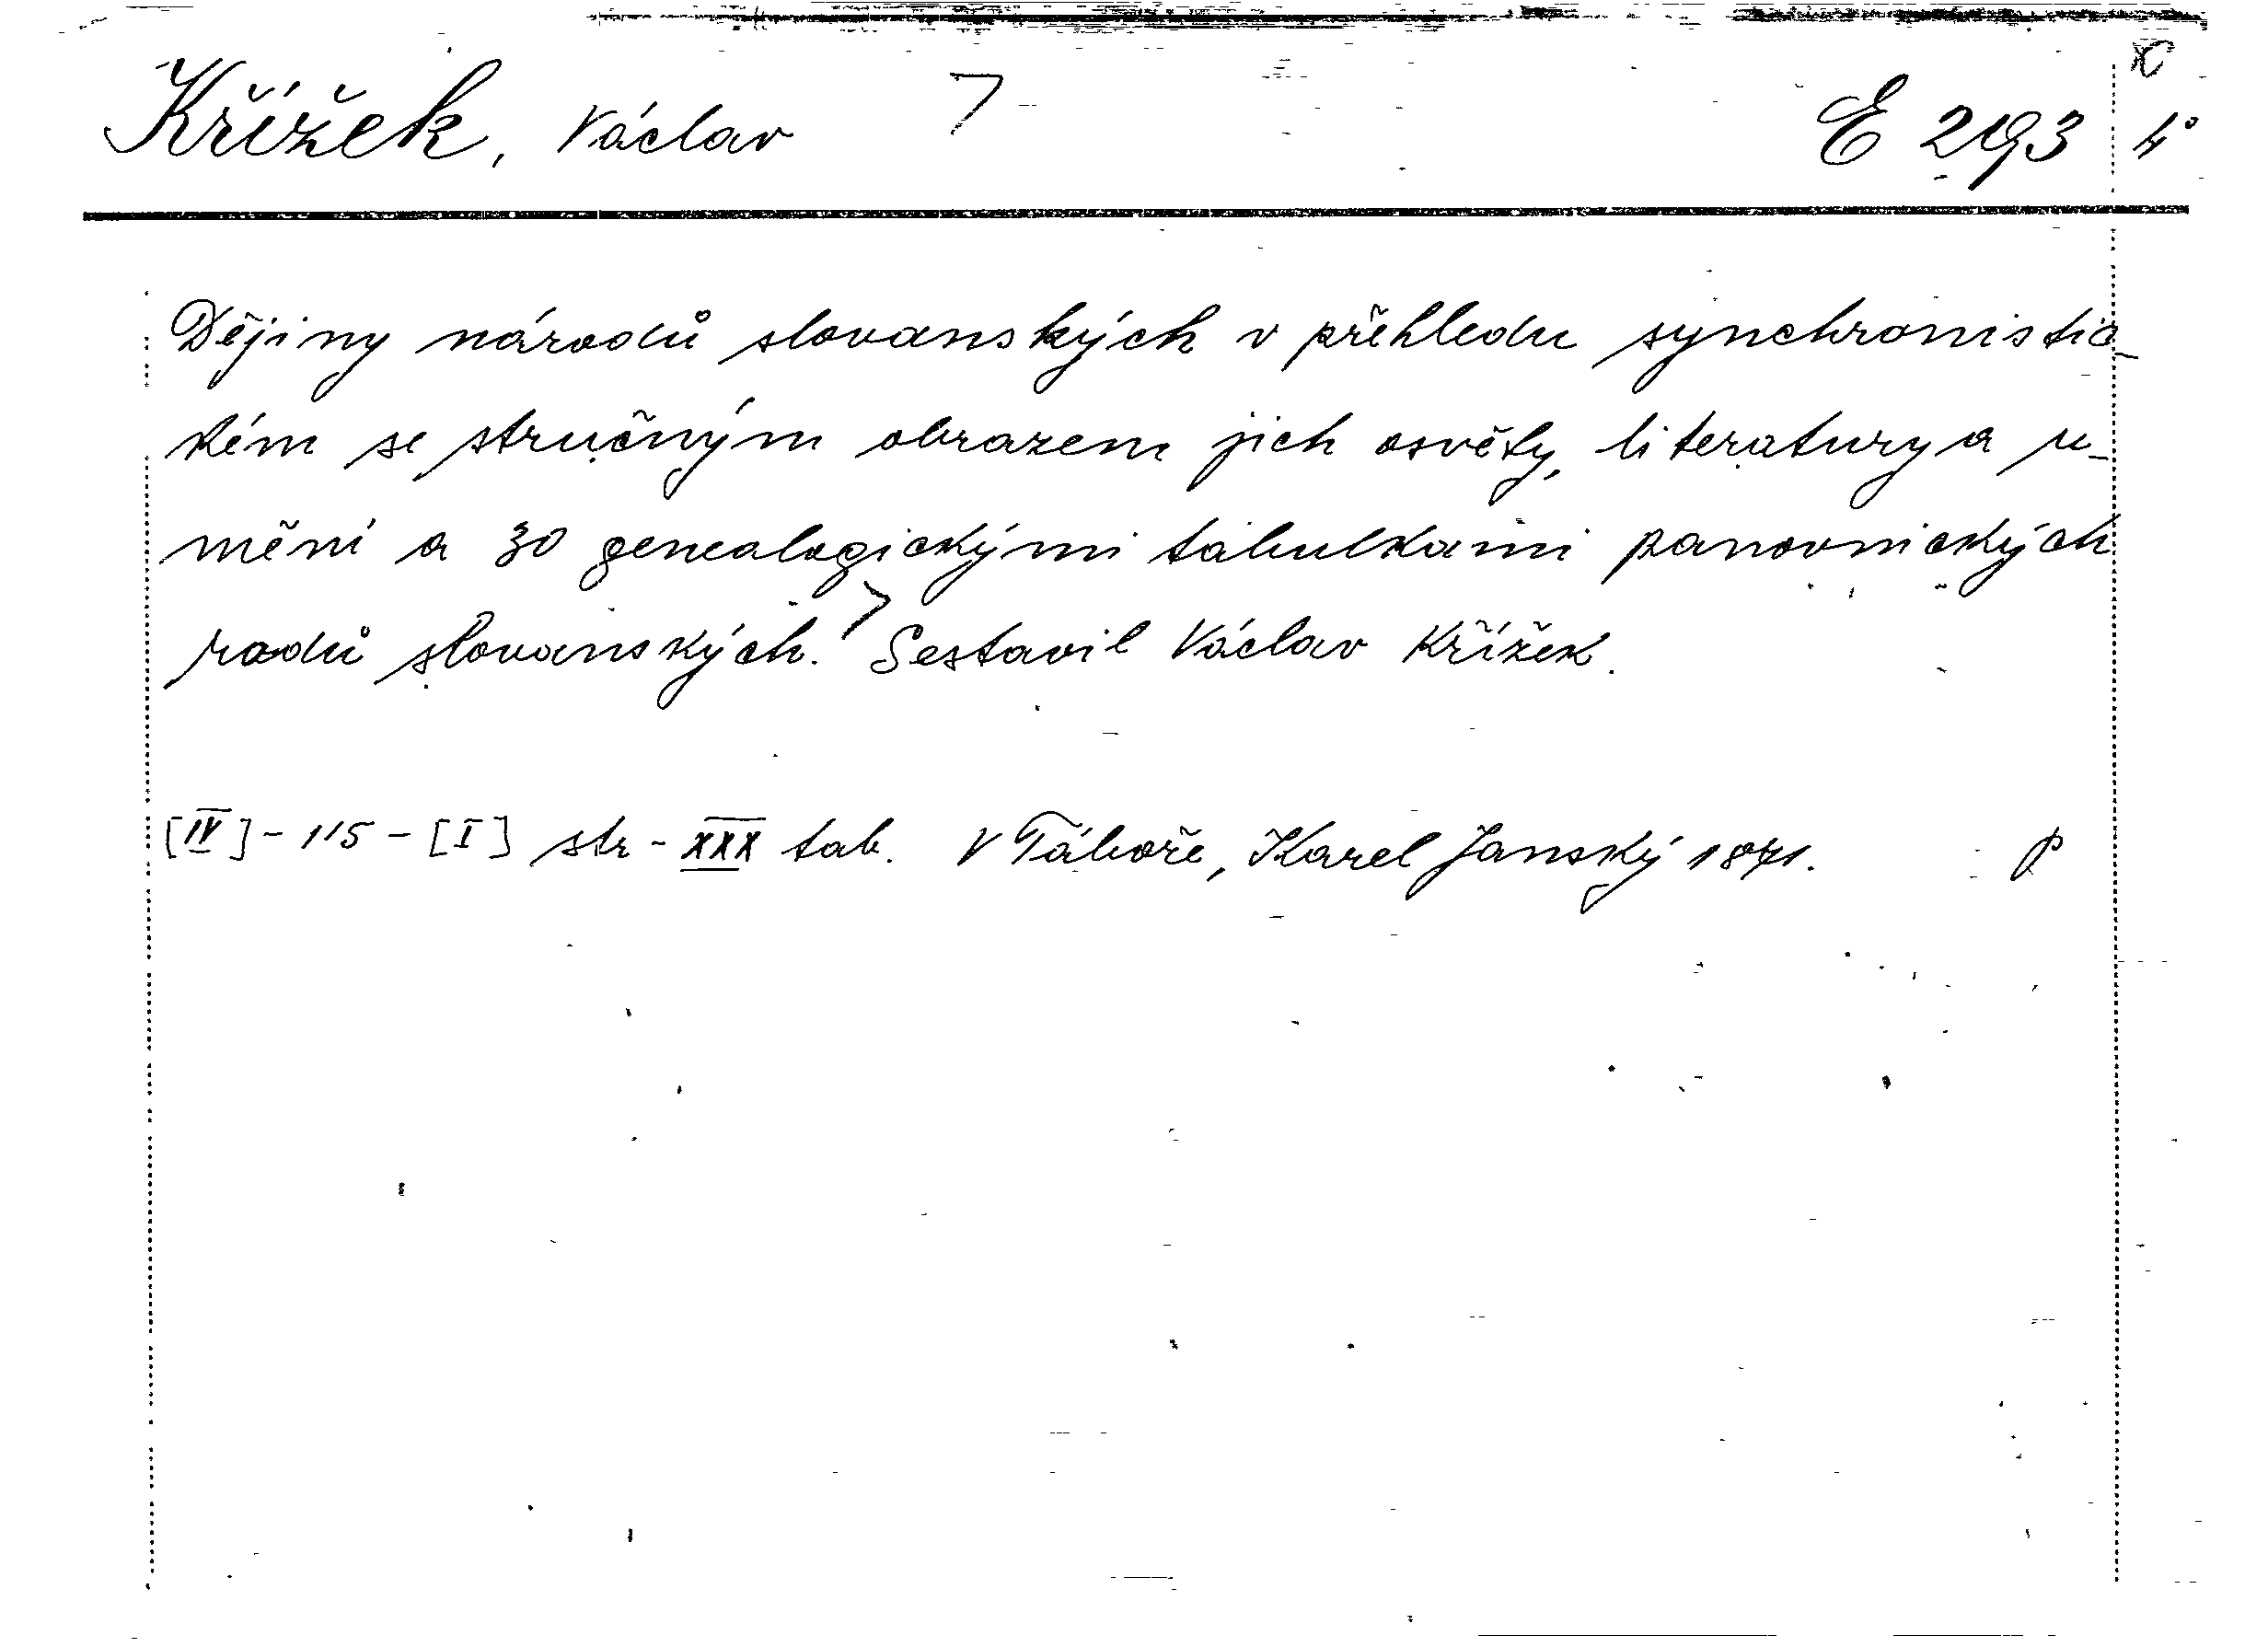 Křížek, Václav 7 E 293 4°
Dějiny národů slovanských v přehledu synchronistic-
kém se stručným obrazem jich osvěty, literatury a u-
mění a 30 genealogickými tabulkami panovnických
rodů slovanských. Sestavil Václav Křížek.
[IV] - 115 - [I] str - XXX tab. V Táboře, Karel Janský 1871. p